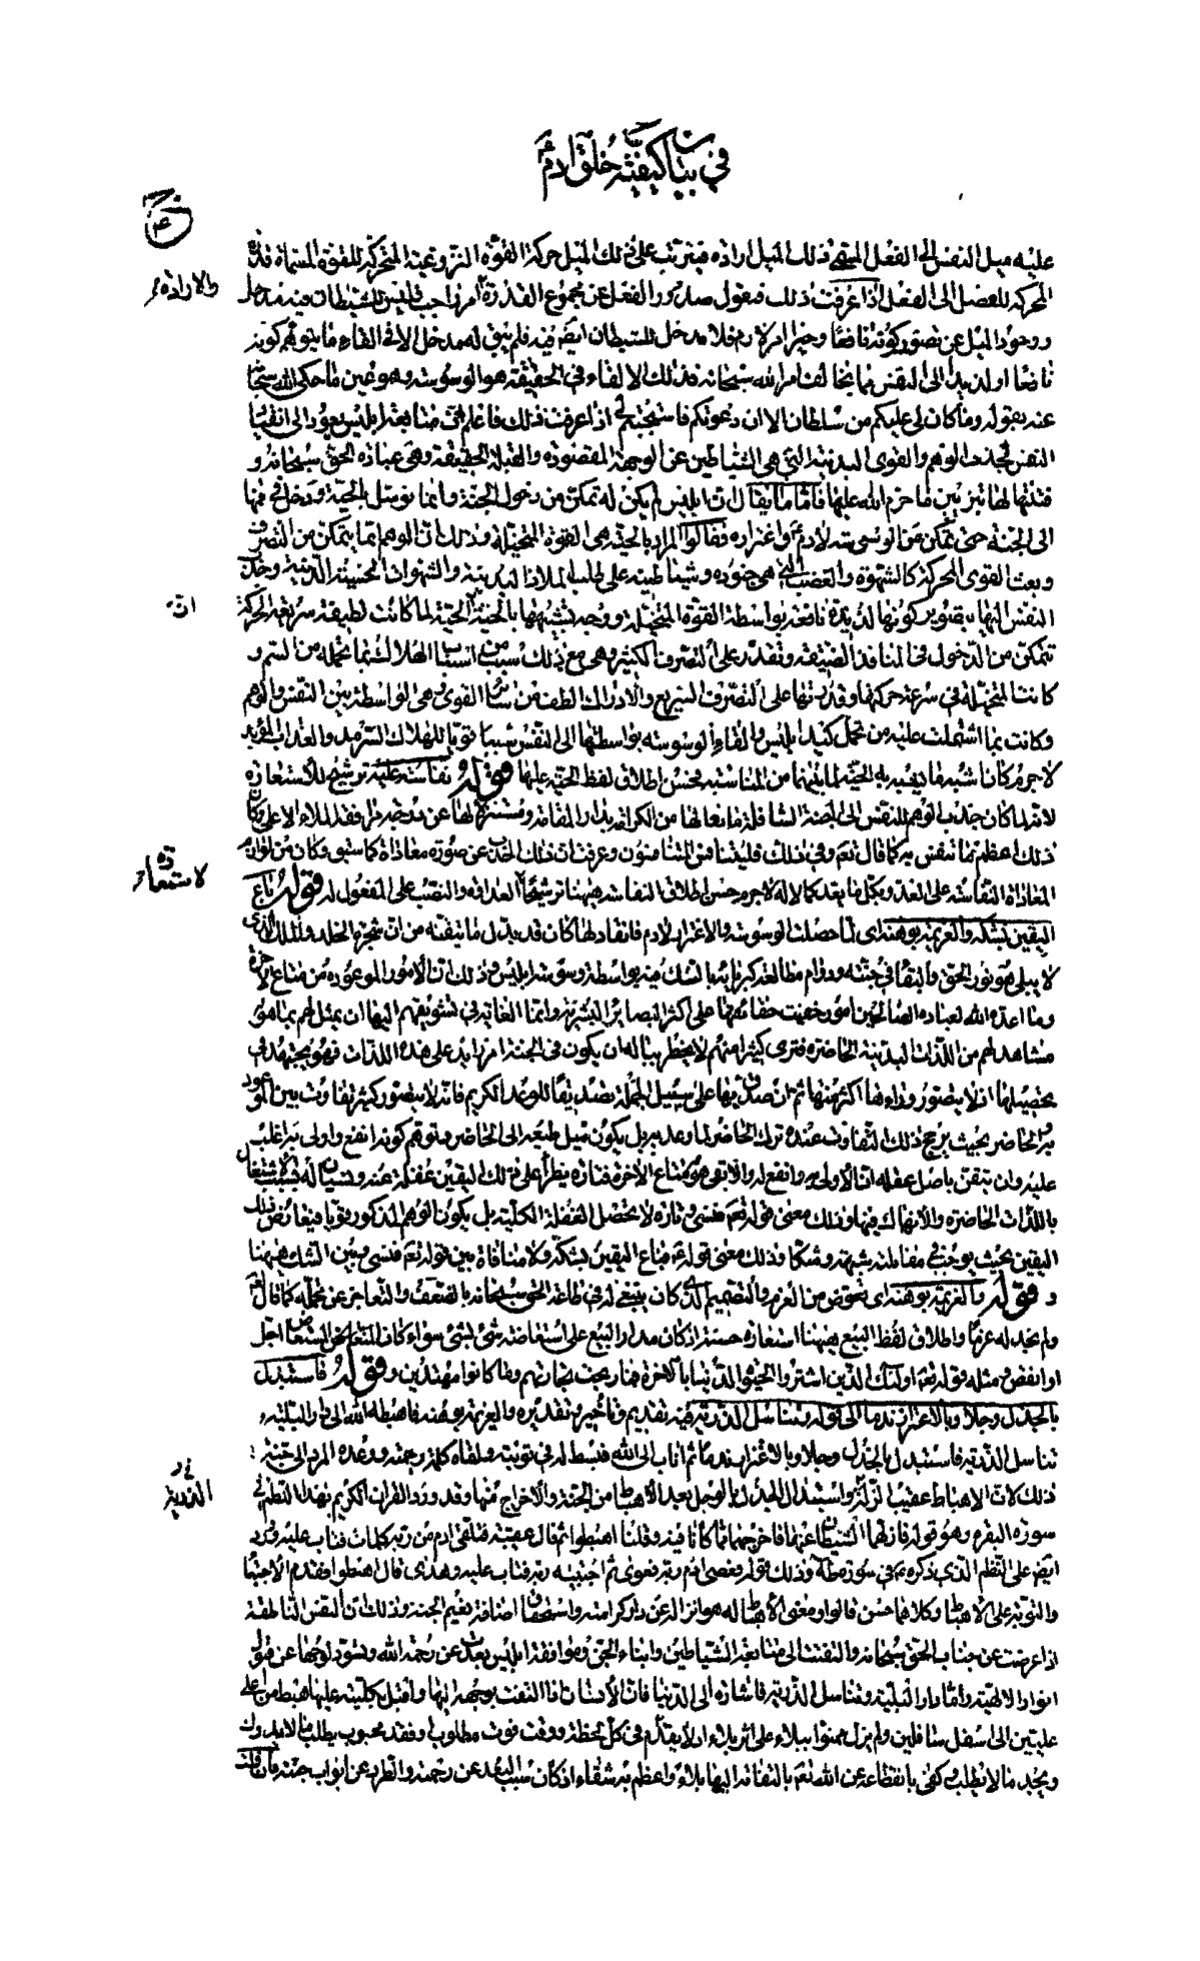 في بيان كيفية خلق ادم
عليه ميل النفس الى الفعل المسمى ذلك الميل ارادة فيترتب على ذلك الميل حركة القوة النزوعية المحركة للقوة المسماة قدرة
والارادة
المحركة للعضل الى الفعل اذا عرفت ذلك فنقول صدور الفعل عن مجموع القدرة امر واجب فليس للشيطان فيه مدخل
ووجود الميل عن تصور كونه نافعا وخيرا امر لازم فلا مدخل للشيطان ايضا فيه فلم يبق له مدخل الا في القاء ما يتوهم كونه
نافعا او لذيذا الى النفس مما يخالف امر الله سبحانه فذلك الالقاء في الحقيقة هو الوسوسة وهو عين ما حكى الله سبحانه
عنه بقوله وما كان لى عليكم من سلطان الا ان دعوتكم فاستجبتم لى اذا عرفت ذلك فاعلم ان متابعة ابليس يعود الى انقياد
النفس لجذب الوهم والقوى البدنية التي هي الشياطين عن الوجهة المقصودة والقبلة الحقيقية وهي عبادة الحق سبحانه و
فتنتها لها بتزيين ما حرم الله عليها فاما ما يقال ان ابليس لم يكن له تمكن من دخول الجنة وانما توسل بالحية ودخل في فمها
الى الجنة حتى تمكن من الوسوسة لادم واغتراره فقالوا المراد بالحية هي القوة المتخيلة وذلك ان الوهم انما يتمكن من التصرف
وبعث القوى المحركة كالشهوة والغضب التي هي جنوده وشياطينه على طلب الملاذ البدنية والشهوات الحسية الدنية وجذب
ان
النفس اليها بتصوير كونها لذيذة نافعة بواسطة القوة المتخيلة ووجه تشبيهها بالحية ان الحية لما كانت لطيفة سريعة الحركة
تتمكن من الدخول في المنافذ الضيقة وتقدر على التصرف الكثير وهي مع ذلك سبب من اسباب الهلاك بما تحمله من السم و
كانت المتخيلة في سرعة حركتها وقدرتها على التصرف السريع والادراك الطف من سائر القوى وهي الواسطة بين النفس والوهم
وكانت بما اشتملت عليه من تحمل كيد ابليس والقاء الوسوسة بواسطتها الى النفس سببا قويا للهلاك السرمد والعذاب المؤبد
لا جرم كان اشبه ما يشبه به الحية لما بينهما من المناسبة فحسن اطلاق لفظ الحية عليها وقوله نفاسة عليه ترشيح للاستعارة
لانه لما كان جذب الوهم للنفس الى الجنة السافلة مانعا لها من الكرامة بدار المقامة
الاستعارة
ذلك اعظم ما تنفس به كما قال تعالى وفي ذلك فليتنافس المتنافسون وعرفت ان ذلك الجذب عن صورة معاداة كما سبق وكان من لوازم
المعاداة النفاسة على العدو بكل ما يعد كمالا له لا جرم حسن اطلاق النفاسة ههنا ترشيحا العداوة والنصب على المفعول له وقوله فباع
اليقين بشكه والعزيمة بوهنه اى لما حصلت الوسوسة والاغترار لادم فانقاد لها كان قد بدل ما تيقنه من ان شجرة الخلد والملك الذى
لا يبلى هو نور الحق والبقاء في جنته ودوام مطالعة كبريائه بالشك فيه بواسطة وسوسة ابليس وذلك ان الامور الموعودة من متاع الاخرة
وما اعده الله لعباده الصالحين امور خفيت حقائقها على اكثر البصائر البشرية وانما الغاية في تشويقهم اليها ان يمثل لهم بما هو
مشاهد لهم من اللذات البدنية الحاضرة فترى كثيرا منهم لا يخطر بباله ان يكون في الجنة امر زايد على هذه اللذات فهو يجتهد في
تحصيلها اذ لا يتصور وراءها اكثر منها ثم ان صدق بها على سبيل الجملة تصديقا للوعد الكريم فانه لا يتصور كثير تفاوت بين الموعود
به الحاضر بحيث يرجح ذلك التفاوت عنده ترك الحاضر لما وعد به بل يكون ميل طبعه الى الحاضر وتوهم كونه انفع واولى به اغلب
عليه وان تيقن باصل عقله ان الاولى به وانفع له والابقى هو متاع الاخرة فتارة يطرأ على ذلك اليقين غفلة عنه ونسيان له بسبب الاشتغال
باللذات الحاضرة والانهماك فيها وذلك معنى قوله تعالى فنسى وتارة لا يحصل الغفلة الكلية بل يكون الوهم المذكور قويا فيعارض ذلك
اليقين بحيث يوجب في مقابلته شبهة وشكا وذلك معنى قوله فباع اليقين بشكه ولا منافاة بين قوله تعالى فنسى وبين الشك ههنا
وقوله والعزيمة بوهنه اى تعوض من العزم والتصميم الذى كان ينبغى له في طاعة الحق سبحانه بالضعف والتعاجز عن تحمله كما قال تعالى
ولم نجد له عزما واطلاق لفظ البيع ههنا استعارة حسنة اذ كان مدار البيع على استعاضة شئ بشئ سواء كان المستعاض اجل
او انقص ومثله قوله تعالى اولئك الذين اشتروا الحيوة الدنيا بالاخرة فما ربحت تجارتهم وما كانوا مهتدين وقوله فاستبدل
بالجذل وجلا وبالاغترار ندما الى قوله وتناسل الذرية فيه تقديم وتأخير وتقديره والعزيمة بوهنه فاهبطه الله الى دار البلية و
تناسل الذرية فاستبدل بالجذل وجلا وبالاغترار ندما ثم اناب الى الله فبسط له في توبته ولقاه كلمة رحمته ووعده المرد الى جنته
الذرية
ذلك لان الاهباط عقيب الزلة واستبدال الجذل بالوجل بعد الاهباط من الجنة والاخراج منها وقد ورد القران الكريم بهذا النظم في
سورة البقرة وهو قوله فازلهما الشيطان عنها فاخرجهما مما كانا فيه وقلنا اهبطوا ثم قال عقيبه فتلقى ادم من ربه كلمات فتاب عليه وورد
ايضا على النظم الذى ذكره في سورة طه وذلك قوله وعصى ادم ربه فغوى ثم اجتبيه ربه فتاب عليه وهدى قال اهبطوا فقدم الاجتباء
والتوبة على الاهباط وكلاهما حسن قالوا ومعنى الاهباط له هو انزاله عن دار كرامته واستحقاق اضافة نعيم الجنة وذلك ان النفس الناطقة
اذا عرضت عن جناب الحق سبحانه والتفتت الى متابعة الشياطين وابناء الجن وموافقة ابليس بعدت عن رحمة الله وتسود لوجها عن قبول
انوار الالهية واما دار البلية وتناسل الذرية فاشارة الى الدنيا فان الانسان اذا التفت بوجهه اليها واقبل بكليته عليها هبط من اعلى
عليين الى اسفل سافلين ولم يزل ممنوا ببلاء على اثر بلاء اذ لا يعدم في كل لحظة ووقت فوت مطلوب او فقد محبوب يطلب ما لا يدرك
ويجد ما لا يطلب وكفى بانقطاعه عن الله تعالى بالتفاته اليها بلاء واعظم به شقاء اذ كان سبب البعد عن رحمته والطرد عن ابواب جنته فان قلت